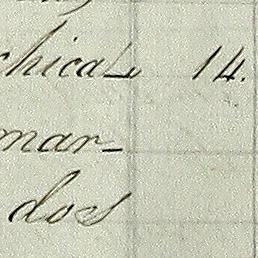 chica 14.
mar-
dos